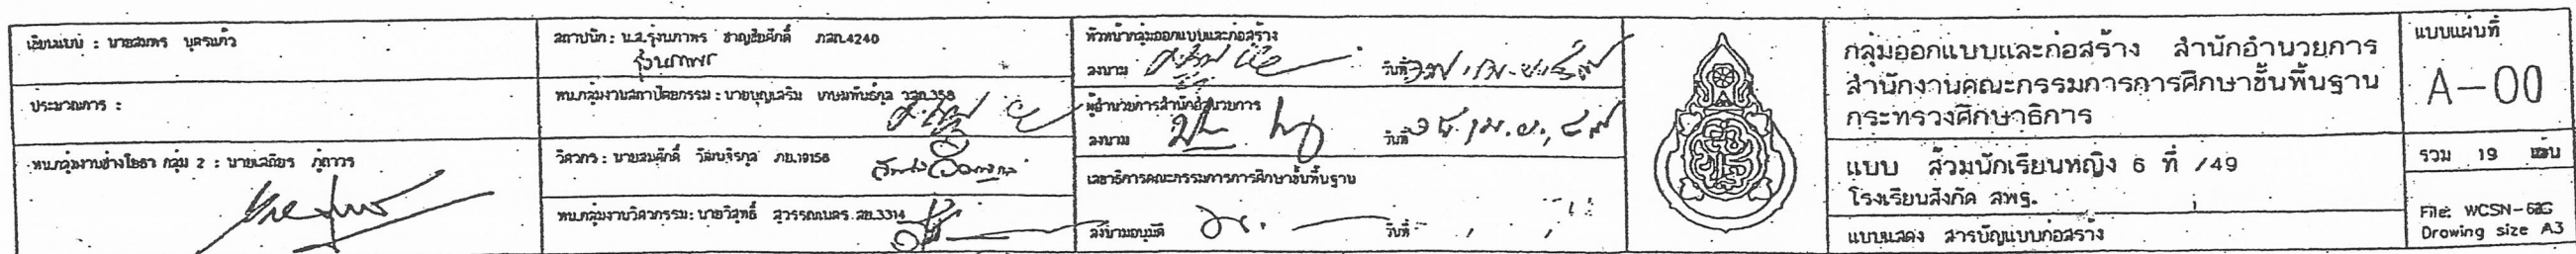 เขียนแบบ : นายสมพร บุตรแก้ว
ประมาณการ :
หน.กลุ่มงานช่างโยธา กลุ่ม 2 : นายเสถียร ภู่ถาวร
สถาปนิก : น.ส.รุ่งนภาพร ชาญชัยศักดิ์ ภสถ.4240
รุ่งนภาพร
หน.กลุ่มงานสถาปัตยกรรม : นายบุญเสริม เกษมพันธ์กุล วสถ.358
วิศวกร : นายสมศักดิ์ วัฒนจิรกุล ภย.19158
หน.กลุ่มงานวิศวกรรม : นายวิสุทธิ์ สุวรรณเนตร สย.3314
หัวหน้ากลุ่มออกแบบและก่อสร้าง
ลงนาม วันที่
ผู้อำนวยการสำนักอำนวยการ
ลงนาม วันที่
เลขาธิการคณะกรรมการการศึกษาขั้นพื้นฐาน
ลงนามอนุมัติ วันที่
กลุ่มออกแบบและก่อสร้าง สำนักอำนวยการ
สำนักงานคณะกรรมการการศึกษาขั้นพื้นฐาน
กระทรวงศึกษาธิการ
แบบ ส้วมนักเรียนหญิง 6 ที่ /49
โรงเรียนสังกัด สพฐ.
แบบแสดง สารบัญแบบก่อสร้าง
แบบแผ่นที่
A-00
รวม 19 แผ่น
File: WCSN-6
Drowing size A3